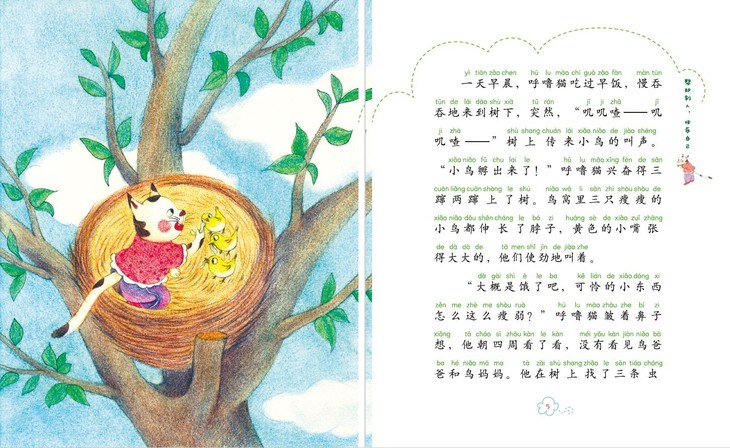 yì tiān zǎo chen hū lu māo chī guà zǎo fàn màn tūn
一天早晨，呼噜猫吃过早饭，慢吞
tūn de lái dào shù xià tū rán jī jī zhā jī
吞地来到树下，突然，“叽叽喳——叽
jī zhā shù shang chuán lái xiǎo niǎo de jiào shēng
叽喳——”树上传来小鸟的叫声。
xiǎo niǎo fū chu lai le hū lu māo xīng fèn de sān
“小鸟孵出来了！”呼噜猫兴奋得三
cuān liǎng cuān shàng le shù niǎo wō li sān zhī shòu shòu de
蹿两蹿上了树。鸟窝里三只瘦瘦的
xiǎo niǎo dōu shēn cháng le bó zi huáng sè de xiǎo zuǐ zhāng
小鸟都伸长了脖子，黄色的小嘴张
de dà dà de tā men shǐ jìn de jiào zhe
得大大的，他们使劲地叫着。
dà gài shì è le ba kě lián de xiǎo dōng xi
“大概是饿了吧，可怜的小东西
zěn me zhè me shòu ruò hū lu māo zhòu zhe bí zi
怎么这么瘦弱？”呼噜猫皱着鼻子
xiǎng tā cháo sì zhōu kàn le kàn méi yǒu kàn jiàn niǎo bà
想，他朝四周看了看，没有看见鸟爸
ba hé niǎo mā ma tā zài shù shang zhǎo le sān tiáo chóng
爸和鸟妈妈。他在树上找了三条虫
5